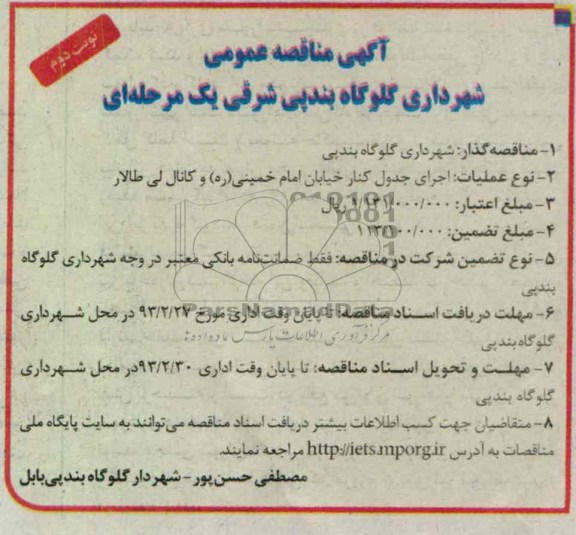 نوبت دوم
آگهی مناقصه عمومی
شهرداری گلوگاه بندپی شرقی یک مرحله‌ای
۱- مناقصه‌گذار: شهرداری گلوگاه بندپی
۲- نوع عملیات: اجرای جدول کنار خیابان امام خمینی(ره) و کانال لی طالار
۳- مبلغ اعتبار: ریال
۴- مبلغ تضمین:
۵- نوع تضمین شرکت در مناقصه: فقط ضمانت‌نامه بانکی معتبر در وجه شهرداری گلوگاه
بندپی
۶- مهلت دریافت اسناد مناقصه: تا پایان وقت اداری مورخ ۹۳/۲/۲۷ در محل شهرداری
گلوگاه بندپی
۷- مهلت و تحویل اسناد مناقصه: تا پایان وقت اداری ۹۳/۲/۳۰در محل شهرداری
گلوگاه بندپی
۸- متقاضیان جهت کسب اطلاعات بیشتر دریافت اسناد مناقصه می‌توانند به سایت پایگاه ملی
مناقصات به آدرس http://iets.mporg.ir مراجعه نمایند.
مصطفی حسن‌پور - شهردار گلوگاه بندپی‌بابل
ParsNamadData
مرکز فرآوری اطلاعات پارس نماد داده‌ها